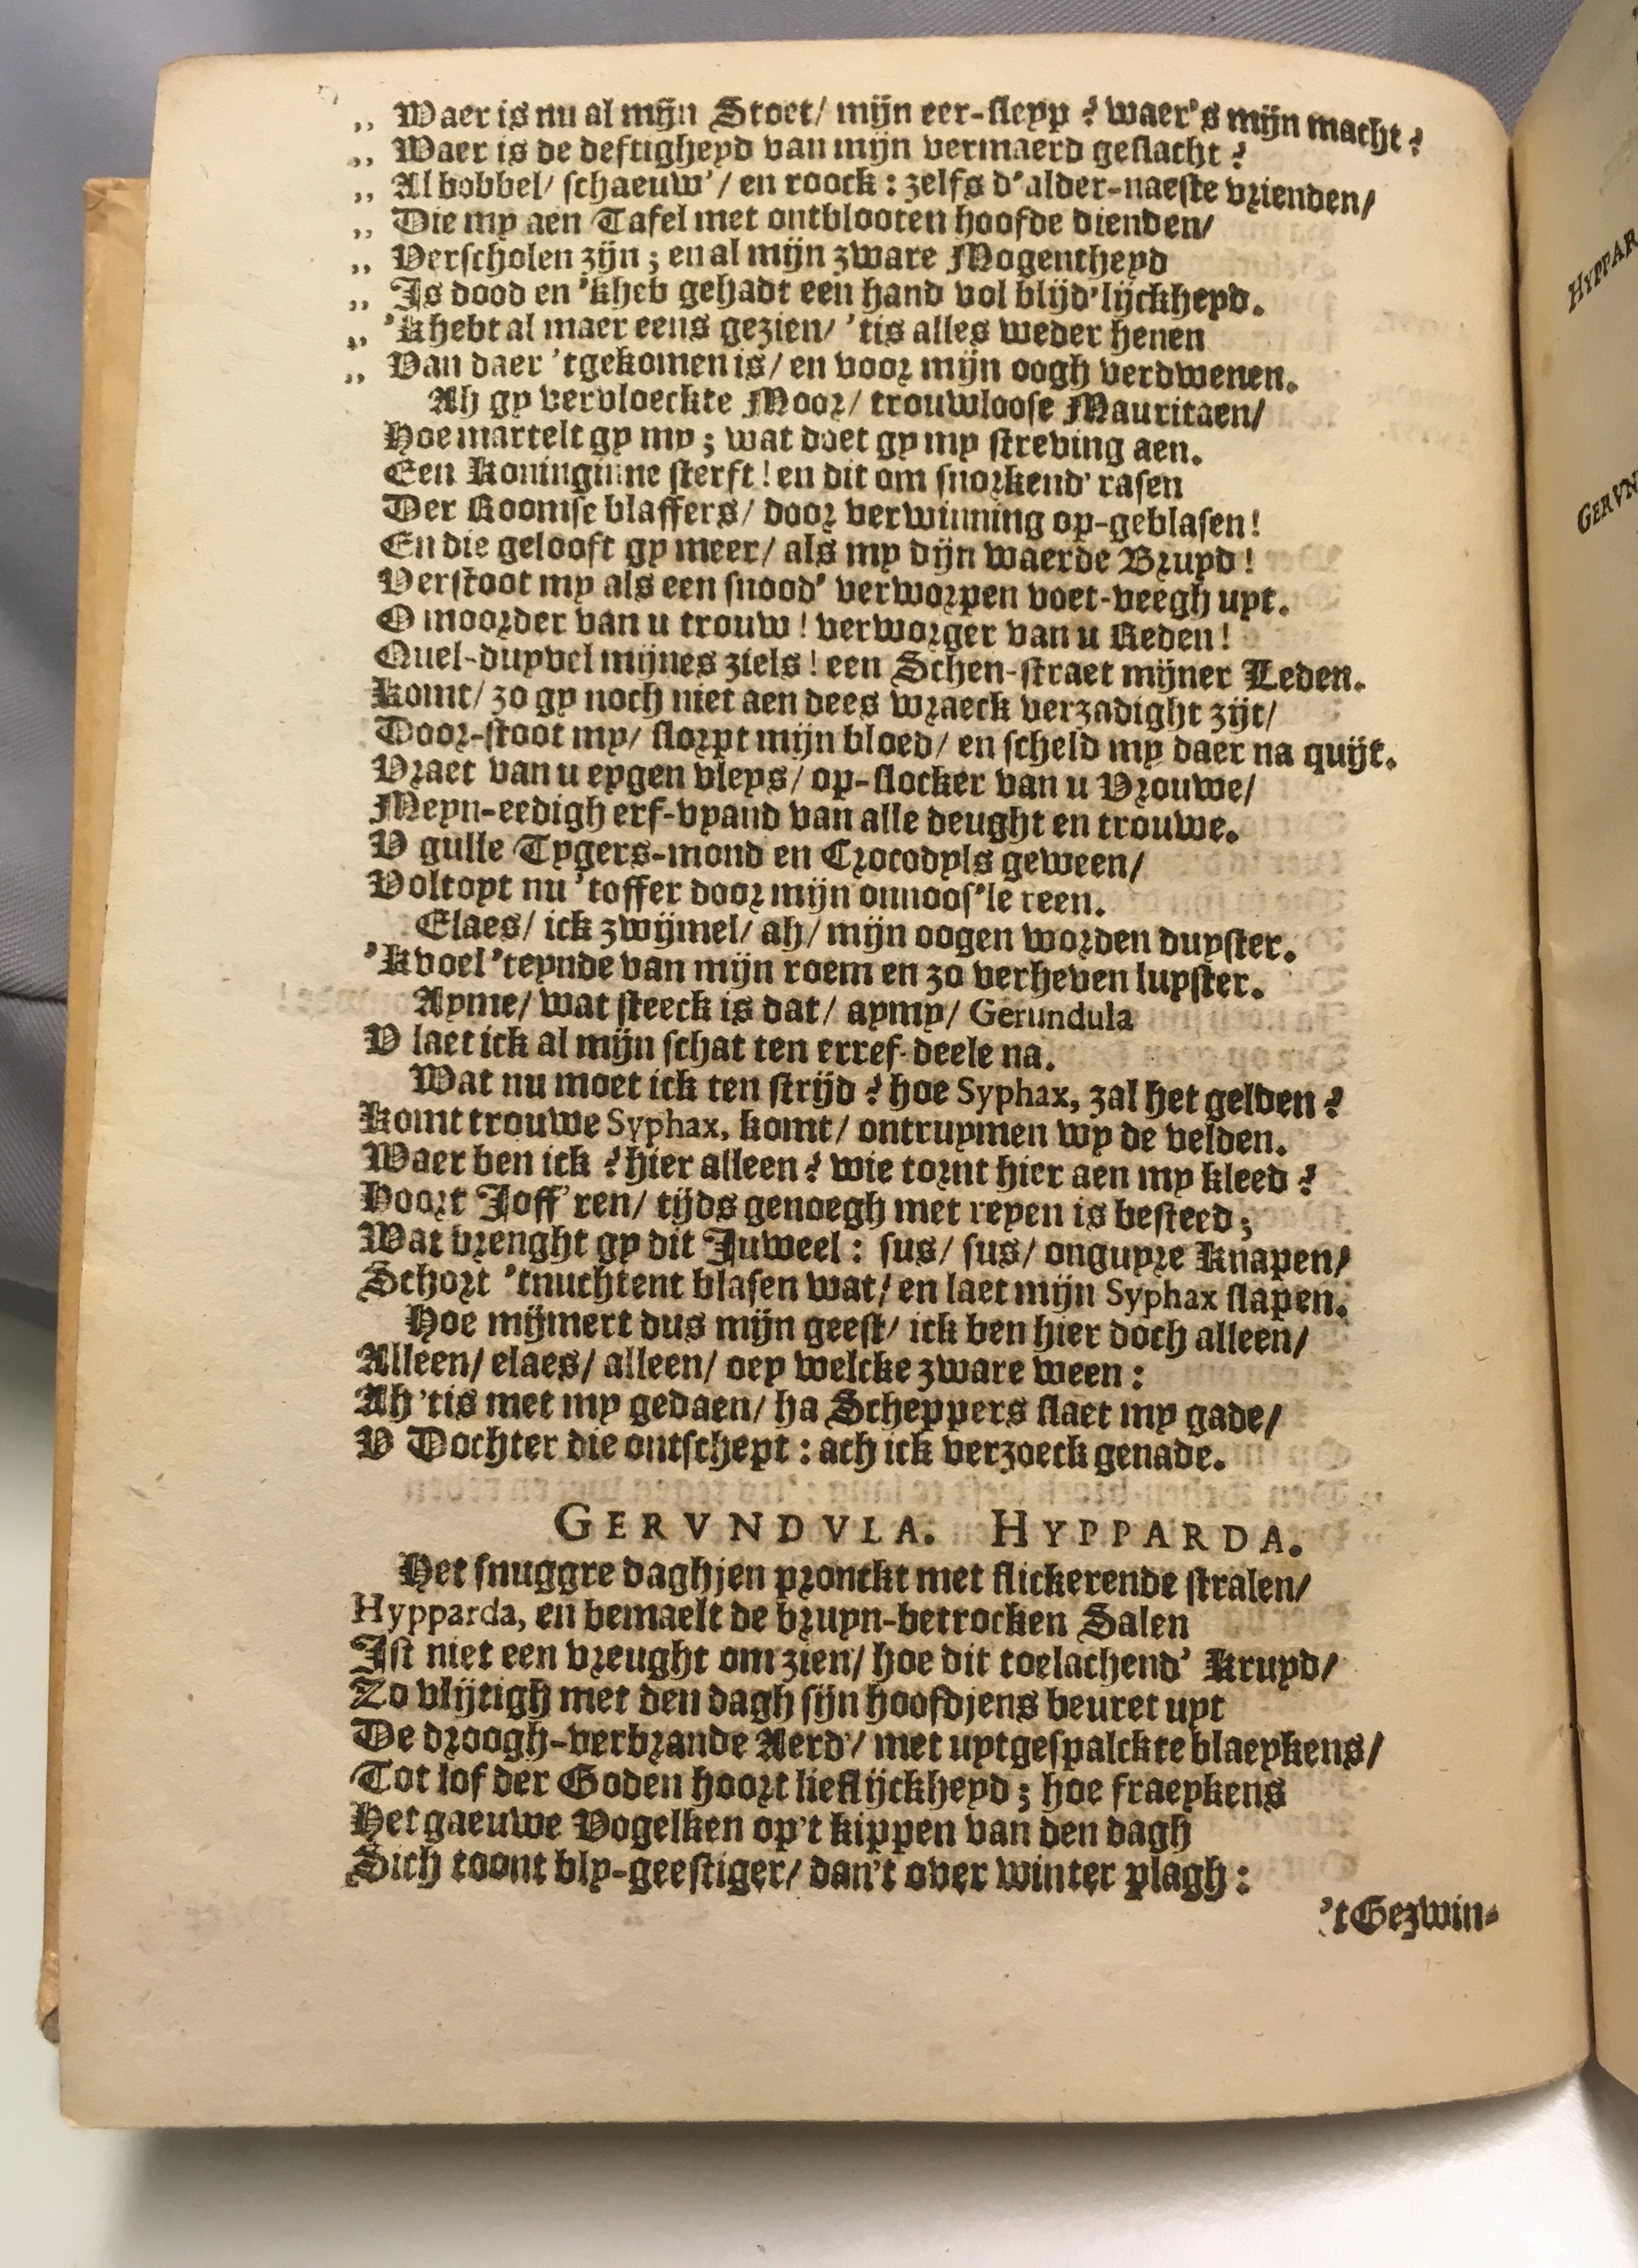 „ Waer is nu al mijn Stoet/ mijn eer-sleyp? waer's mijn macht?
„ Waer is de deftigheyd van mijn vermaerd geslacht?
„ Al bobbel/ schaeuw'/ en roock: zelfs d'alder-naeste vrienden/
„ Die my aen Tafel met ontblooten hoofde dienden/
„ Verscholen zijn; en al mijn zware Mogentheyd
„ Is dood en 'kheb gehadt een hand vol blijd'lijckheyd.
„ 'Khebt al maer eens gezien/ 'tis alles weder henen
„ Van daer 'tgekomen is/ en voor mijn oogh verdwenen.
Ah gy vervloeckte Moor/ trouwloose Mauritaen/
Hoe martelt gy my; wat doet gy my streving aen.
Een Koninginne sterft! en dit om snorkend' rasen
Der Roomse blaffers/ door verwinning op-geblasen!
En die gelooft gy meer/ als my dijn waerde Bruyd!
Verstoot my als een snood' verworpen voet-veegh uyt.
O moorder van u trouw! verworger van u Reden!
Quel-duyvel mijnes ziels! een Schen-straet mijner Leden.
Komt/ zo gy noch niet aen dees wraeck verzadight zijt/
Door-stoot my/ slorpt mijn bloed/ en scheld my daer na quijt.
Vraet van u eygen vleys/ op-slocker van u Vrouwe/
Meyn-eedigh erf-vyand van alle deught en trouwe.
V gulle Tygers-mond en Crocodyls geween/
Voltoyt nu 'toffer door mijn onnoos'le reen.
Elaes/ ick zwijmel/ ah/ mijn oogen worden duyster.
'Kvoel 'teynde van mijn roem en zo verheven luyster.
Ayme/ wat steeck is dat/ aymy/ Gerundula
V laet ick al mijn schat ten erref-deele na.
Wat nu moet ick ten strijd? hoe Syphax, zal het gelden?
Komt trouwe Syphax, komt/ ontruymen wy de velden.
Waer ben ick? hier alleen? wie tornt hier aen my kleed?
Hoort Joff'ren/ tijds genoegh met reyen is besteed;
Wat brenght gy dit Juweel: sus/ sus/ onguyre Knapen/
Schort 'tnuchtent blasen wat/ en laet mijn Syphax slapen.
Hoe mijmert dus mijn geest/ ick ben hier doch alleen/
Alleen/ elaes/ alleen/ oey welcke zware ween:
Ah 'tis met my gedaen/ ha Scheppers slaet my gade/
V Dochter die ontschept: ach ick verzoeck genade.
GERVNDVLA. HYPPARDA.
Het snuggre daghjen pronckt met flickerende stralen/
Hypparda, en bemaelt de bruyn-betrocken Salen
Ist niet een vreught om zien/ hoe dit toelachend' Kruyd/
Zo vlijtigh met den dagh sijn hoofdjens beuret uyt
De droogh-verbrande Aerd'/ met uytgespalckte blaeykens/
Tot lof der Goden hoort lieflijckheyd; hoe fraeykens
Het gaeuwe Vogelken op't kippen van den dagh
Sich toont bly-geestiger/ dan't over winter plagh:
'tGezwin-
HYPPAR
GERVN